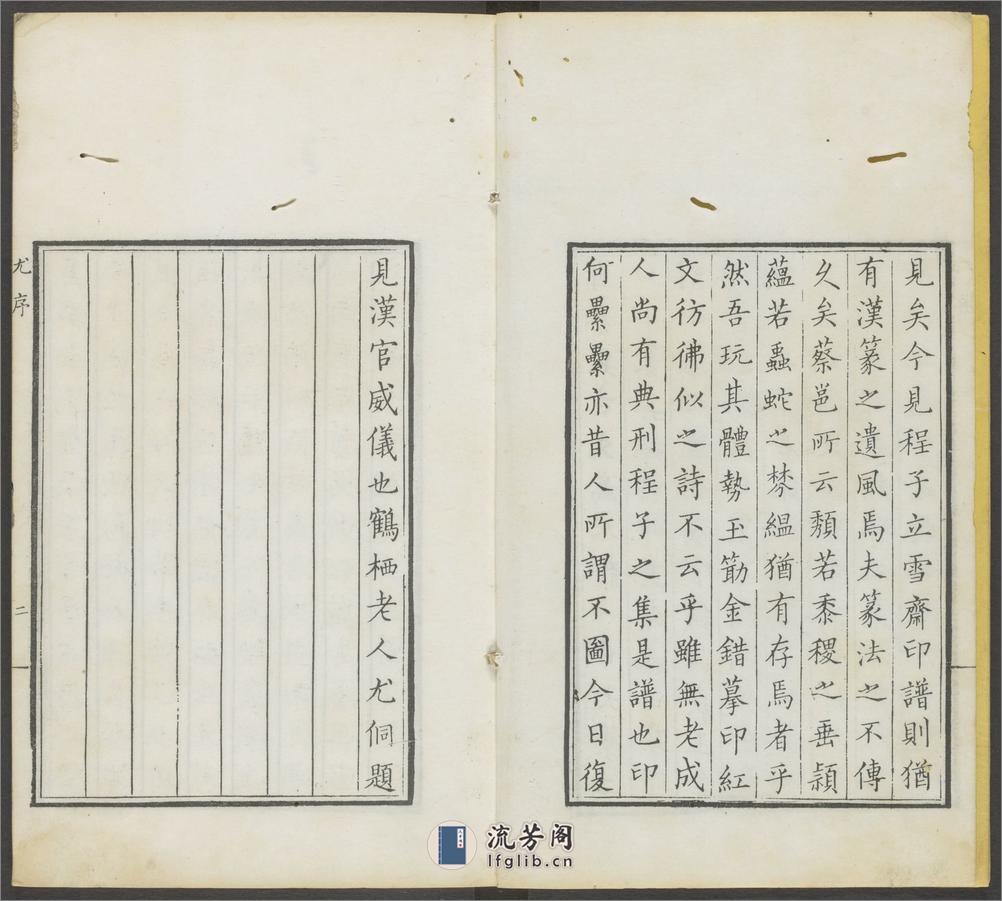 見矣今見程子立雪齋印譜則猶
有漢篆之遺風焉夫篆法之不傳
久矣蔡邕所云頽若黍稷之垂潁
蘊若蟲蛇之棼緼猶有存焉者乎
然吾玩其體勢玉筯金錯摹印紅
文彷彿似之詩不云乎雖無老成
人尚有典刑程子之集是譜也印
何纍纍亦昔人所謂不圖今日復
見漢官威儀也鶴栖老人尤侗題
尤序
二
流芳阁
lfglib.cn